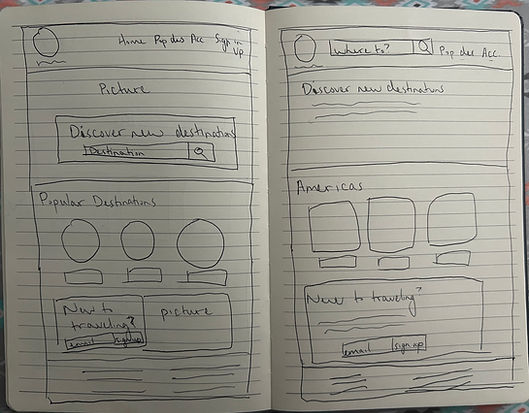 Home Pop des Acc Sign
up
Picture
Discover new destinations
Destination
Popular Destinations
New to
traveling?
email sign up
picture
Where to?
Pop des Acc.
Discover new destinations
Americas
New to traveling?
email sign up